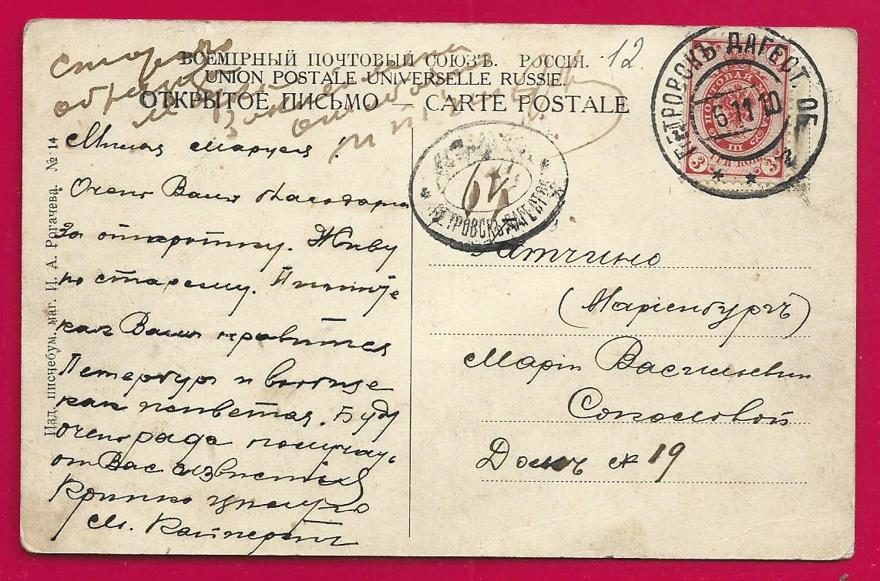 ВСЕМІРНЫЙ ПОЧТОВЫЙ СОЮЗЪ. РОССІЯ.
UNION POSTALE UNIVERSELLE RUSSIE.
ОТКРЫТОЕ ПИСЬМО — CARTE POSTALE
12.
ПЕТРОВСКЪ ДАГЕСТ. ОБ.
6 11 10
ПОЧТОВАЯ МАРКА
3 ТРИ КОП. 3
64
ПЕТРОВСКЪ ДАГЕСТ
Милая Маруся!
Очень Вам благодарна
За открытку. Живу
по старому. Пишите
как Вам нравится
Петербург и вообще
как живется. Буду
очень рада получать
от Вас известія
Крѣпко цѣлую
М.
Гатчино
(Маріенбургъ)
Маріи Васильевнѣ
Соколовой
Домъ № 19
Изд. писчебум. маг. И. А. Рогачева. № 14